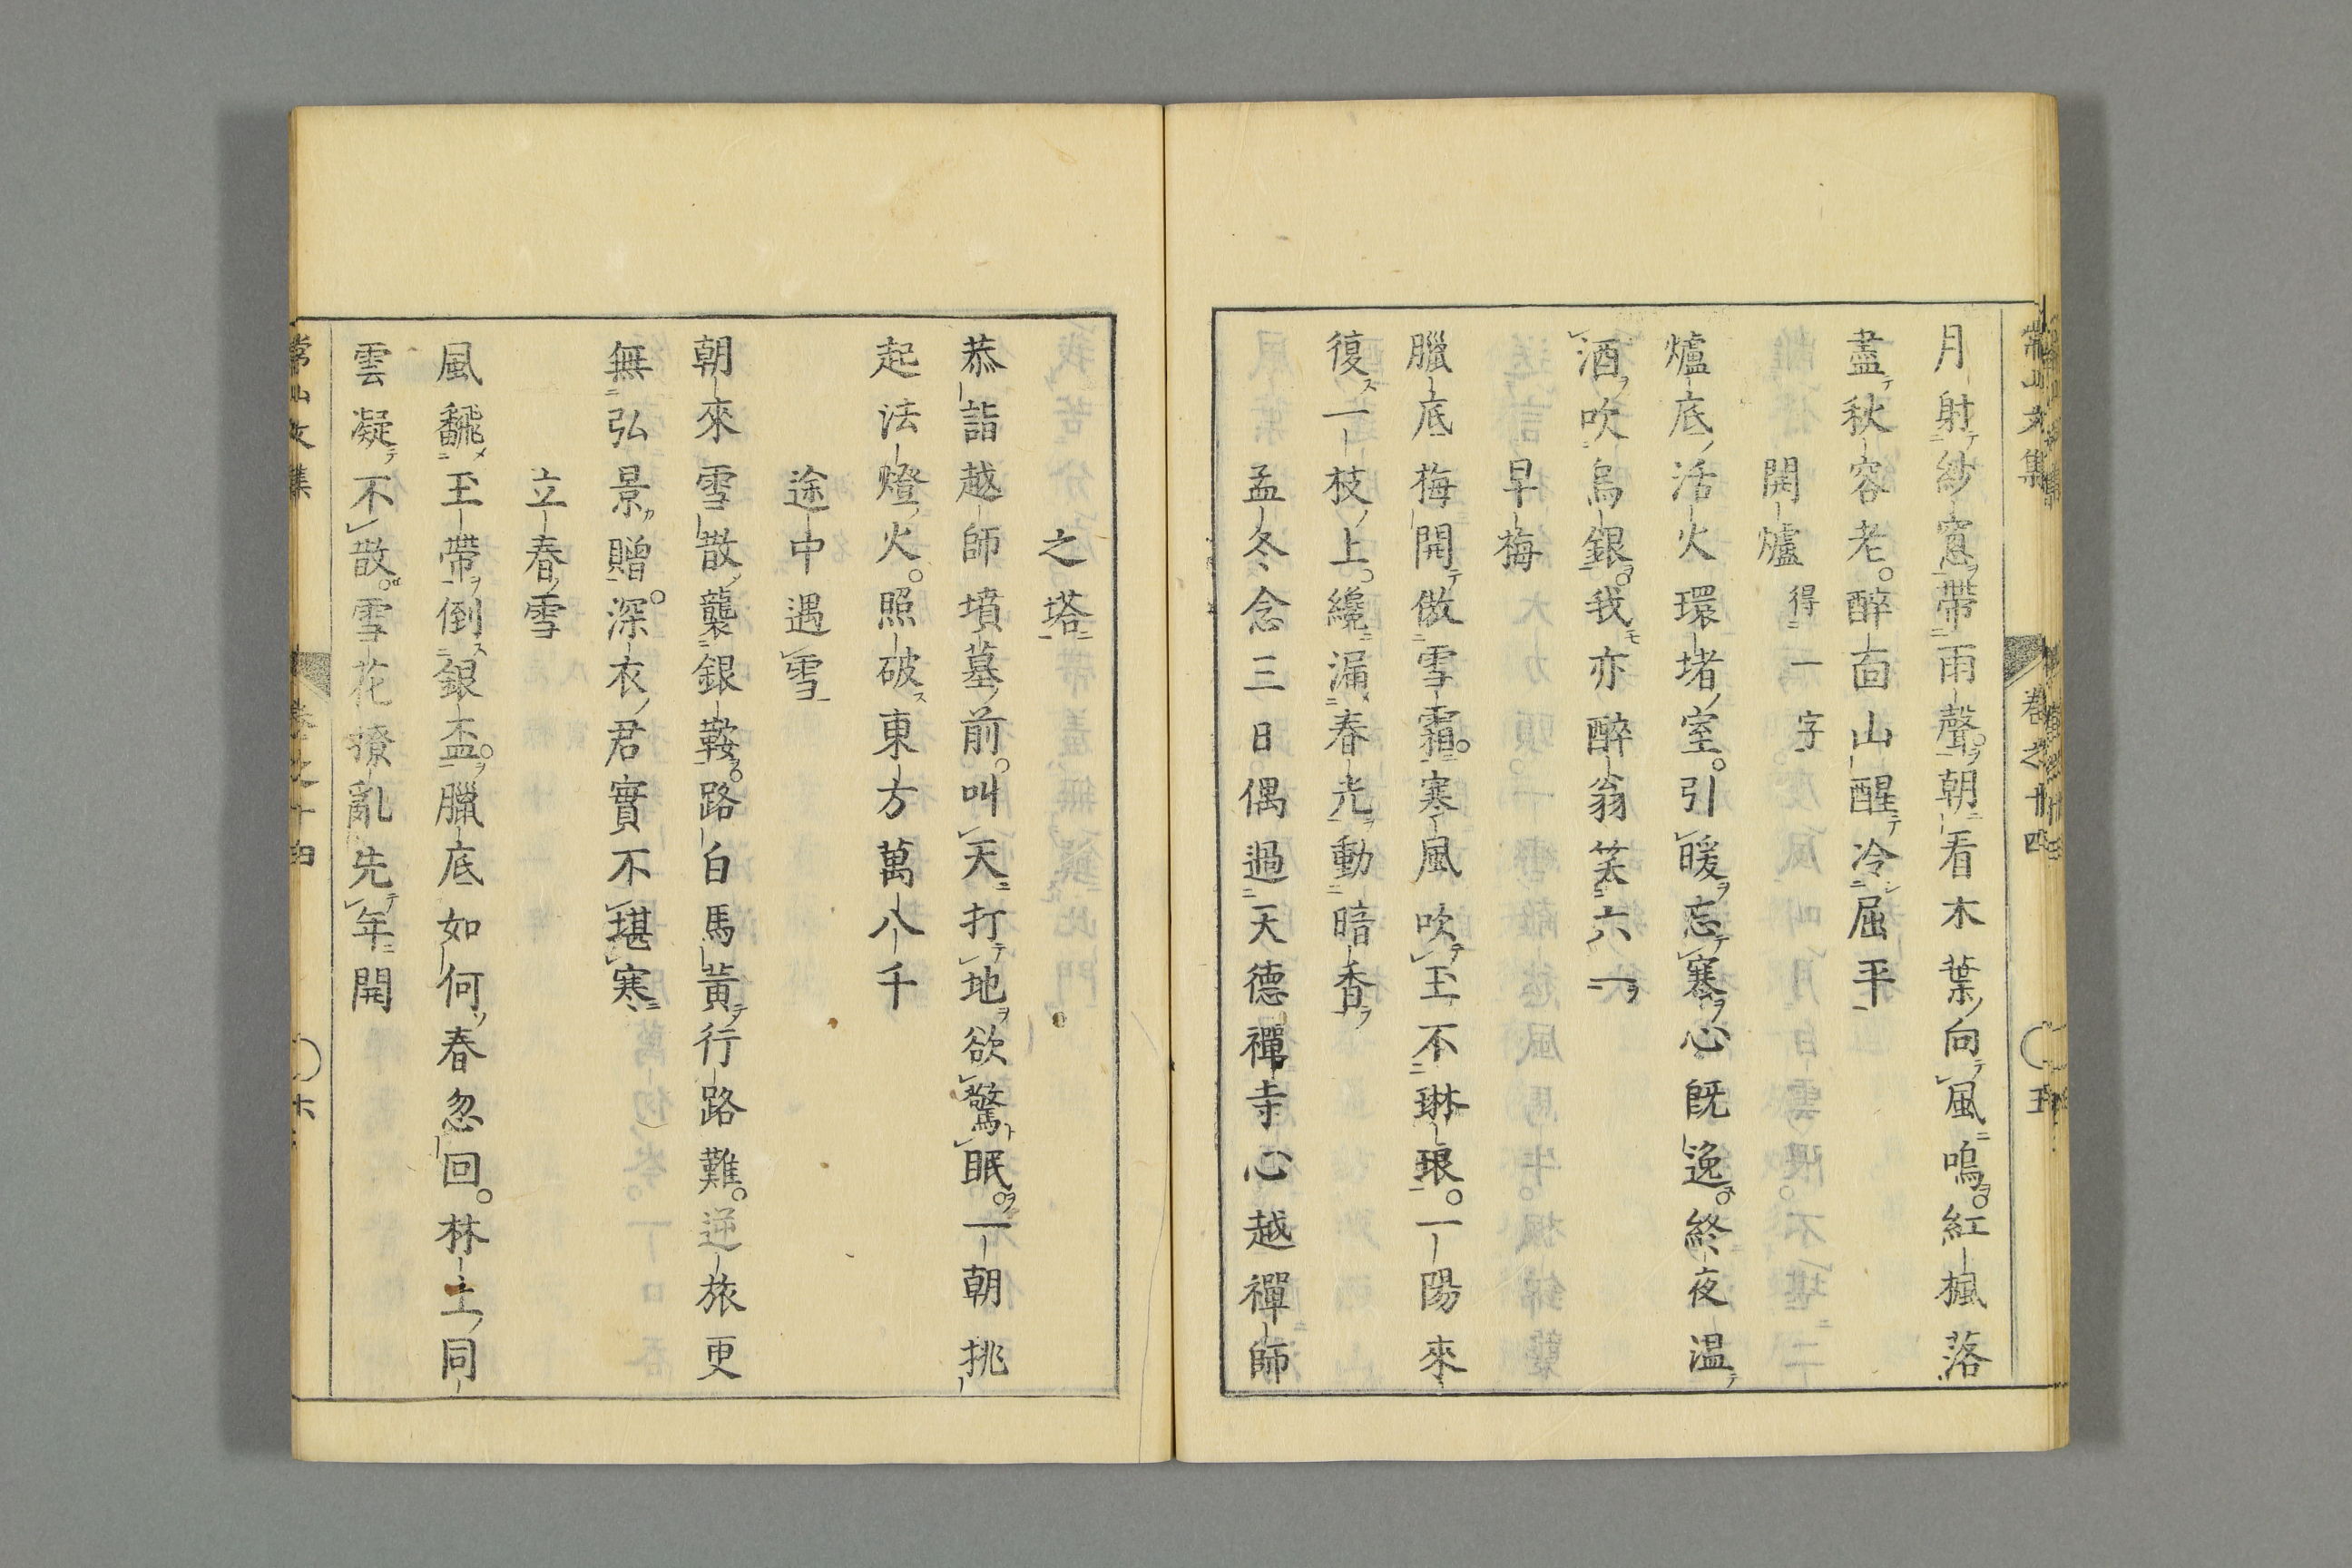 常山文集 卷之十四 五
月射紗窓帶雨聲。朝看木葉向風鳴。紅楓落
盡秋容老。醉面山醒冷屈平
開爐 得一字
爐底活火環堵室。引暖忘寒心既逸。終夜温
酒吹烏銀。我亦醉翁笑六一
早梅
臘底梅開傲雪霜。寒風吹玉不琳琅。一陽來
復一枝上。纔漏春光動暗香
孟冬念三日偶過天德禪寺心越禪師
之塔
恭詣越師墳墓前。叫天打地欲驚眠。一朝挑
起法燈火。照破東方萬八千
途中遇雪
朝來雪散襲銀鞍。路白馬黃行路難。逆旅更
無弘景贈。深衣君實不堪寒
立春雪
風飜玉帶倒銀盃。臘底如何春忽回。林土同
雲凝不散。雪花撩亂先年開
常山文集 卷之十四 六